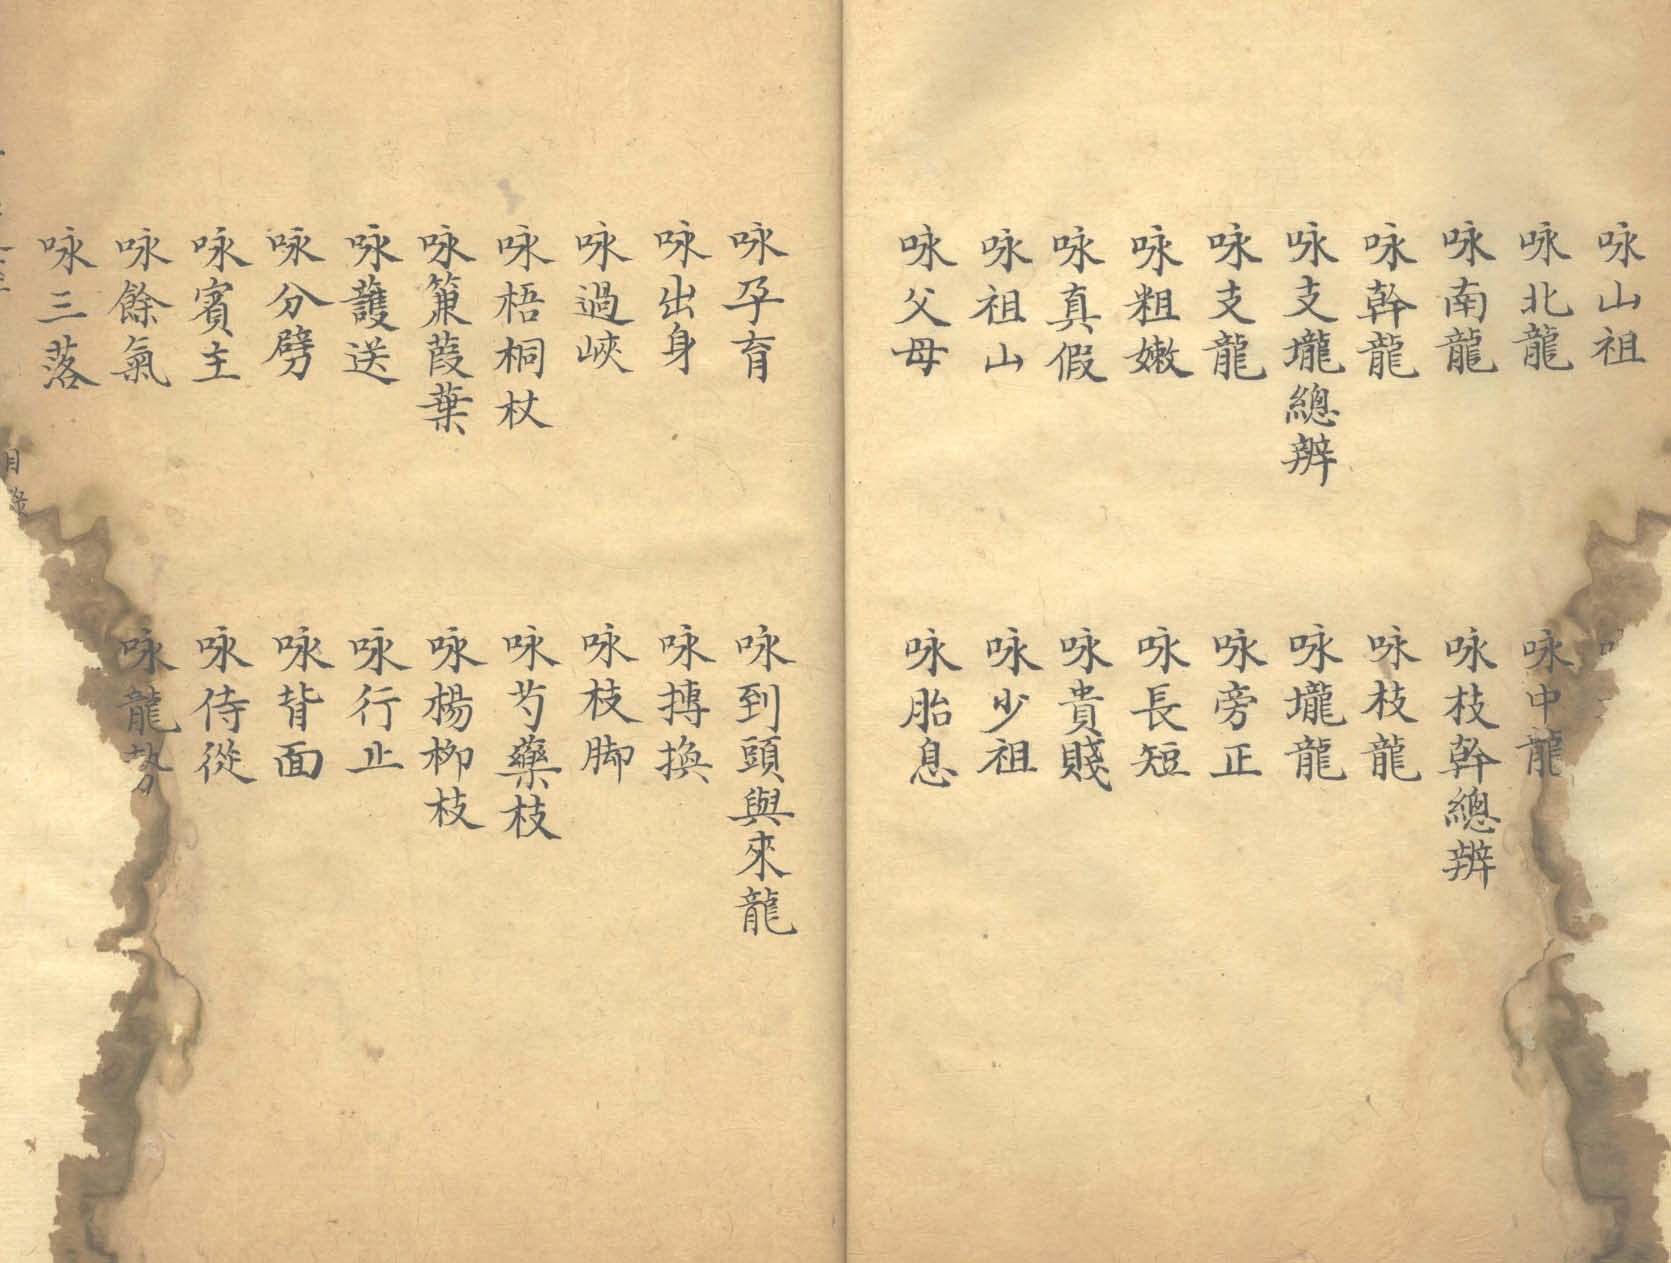 咏山祖
咏北龍
咏中龍
咏南龍
咏枝幹總辨
咏幹龍
咏枝龍
咏支壠總辨
咏壠龍
咏支龍
咏旁正
咏粗嫩
咏長短
咏真假
咏貴賤
咏祖山
咏少祖
咏父母
咏胎息
咏孕育
咏到頭與來龍
咏出身
咏摶換
咏過峽
咏枝脚
咏梧桐杖
咏芍藥枝
咏蒹葭葉
咏楊柳枝
咏護送
咏行止
咏分劈
咏背面
咏賓主
咏侍從
咏餘氣
咏龍勢
咏三落
目錄